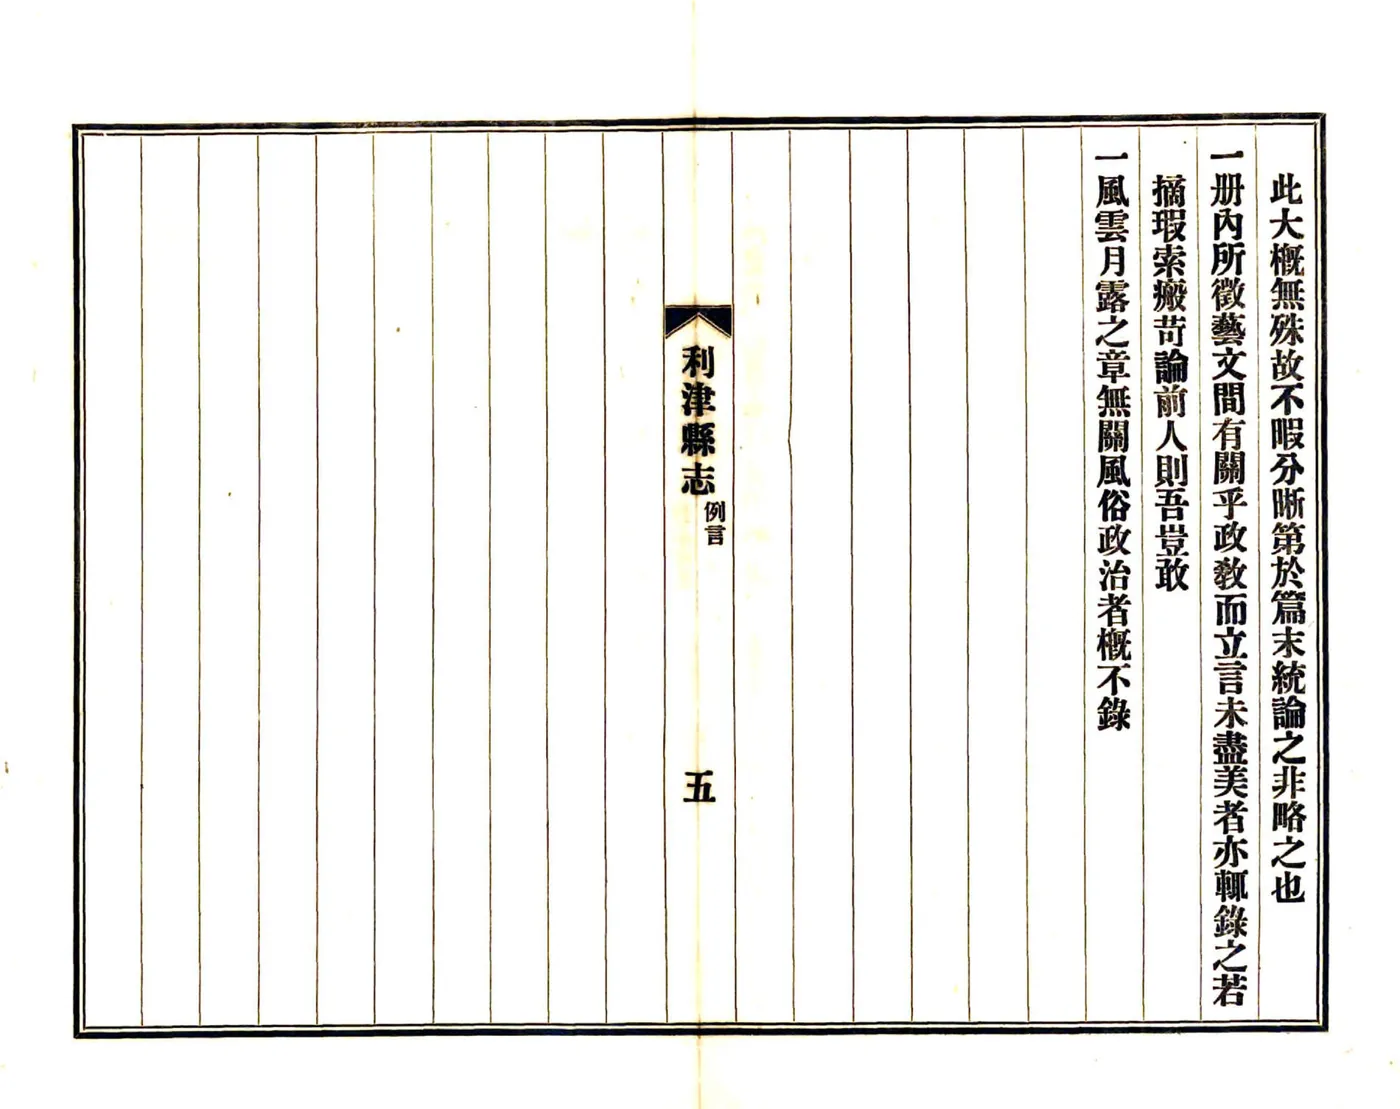 此大概無殊故不暇分晰第於篇末統論之非略之也
一册內所徵藝文間有關乎政敎而立言未盡美者亦輒錄之若
摘瑕索瘢苛論前人則吾豈敢
一風雲月露之章無關風俗政治者概不錄
利津縣志
例言
五